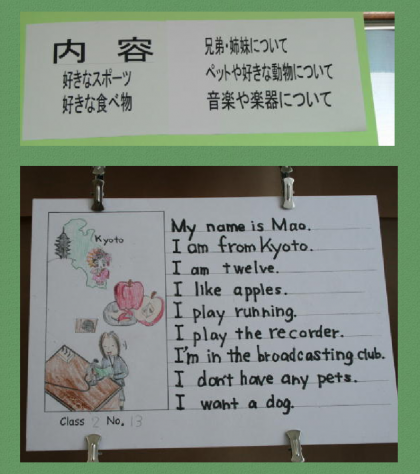 内 容
好きなスポーツ
好きな食べ物
兄弟・姉妹について
ペットや好きな動物について
音楽や楽器について
Kyoto
My name is Mao.
I am from Kyoto.
I am twelve.
I like apples.
I play running.
I play the recorder.
I'm in the broadcasting club.
I don't have any pets.
I want a dog.
Class 2 No. 13